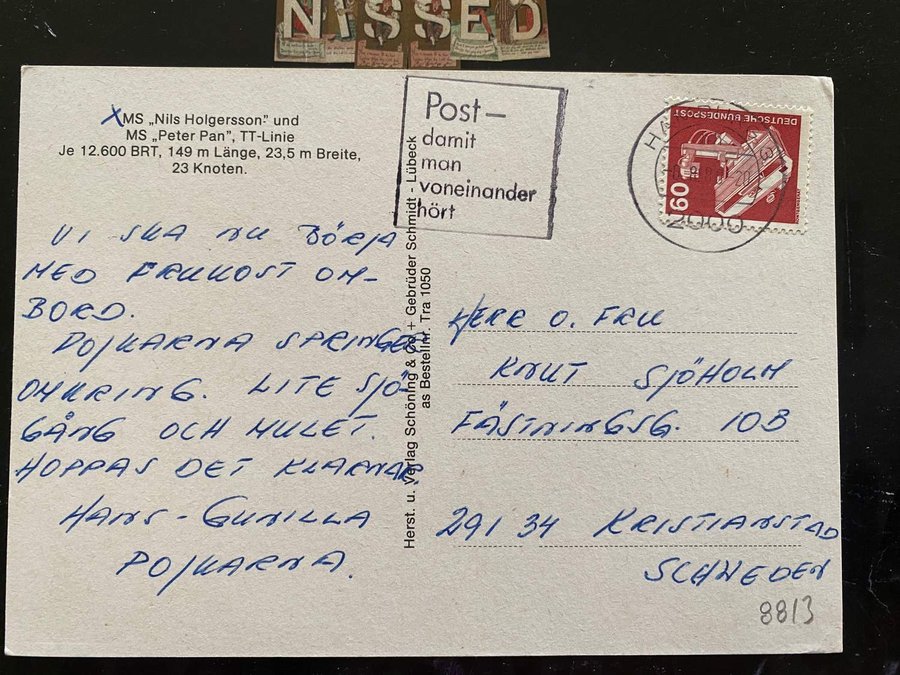 NISSED
X MS „Nils Holgersson" und
MS „Peter Pan", TT-Linie
Je 12.600 BRT, 149 m Länge, 23,5 m Breite,
23 Knoten.
VI SKA NU BÖRJA
MED FRUKOST OM-
BORD.
POJKARNA SPRINGER
OMKRING. LITE SJÖ-
GÅNG OCH MULET.
HOPPAS DET KLARNAR.
HANS - GUNILLA
POJKARNA.
Herst. u. Verlag Schöning & Co + Gebrüder Schmidt - Lübeck
as Bestellnr. Tra 1050
Post-
damit
man
voneinander
hört
2000
DEUTSCHE BUNDESPOST
60
HERR O. FRU
KNUT SJÖHOLM
FÄSTNINGSG. 10B
291 34 KRISTIANSTAD
SCHWEDEN
8813